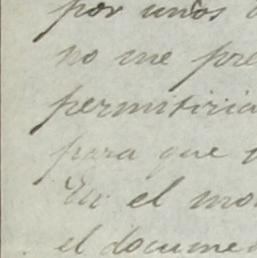 por unos
no me pre
permitiria
para que
En el mo
el docume